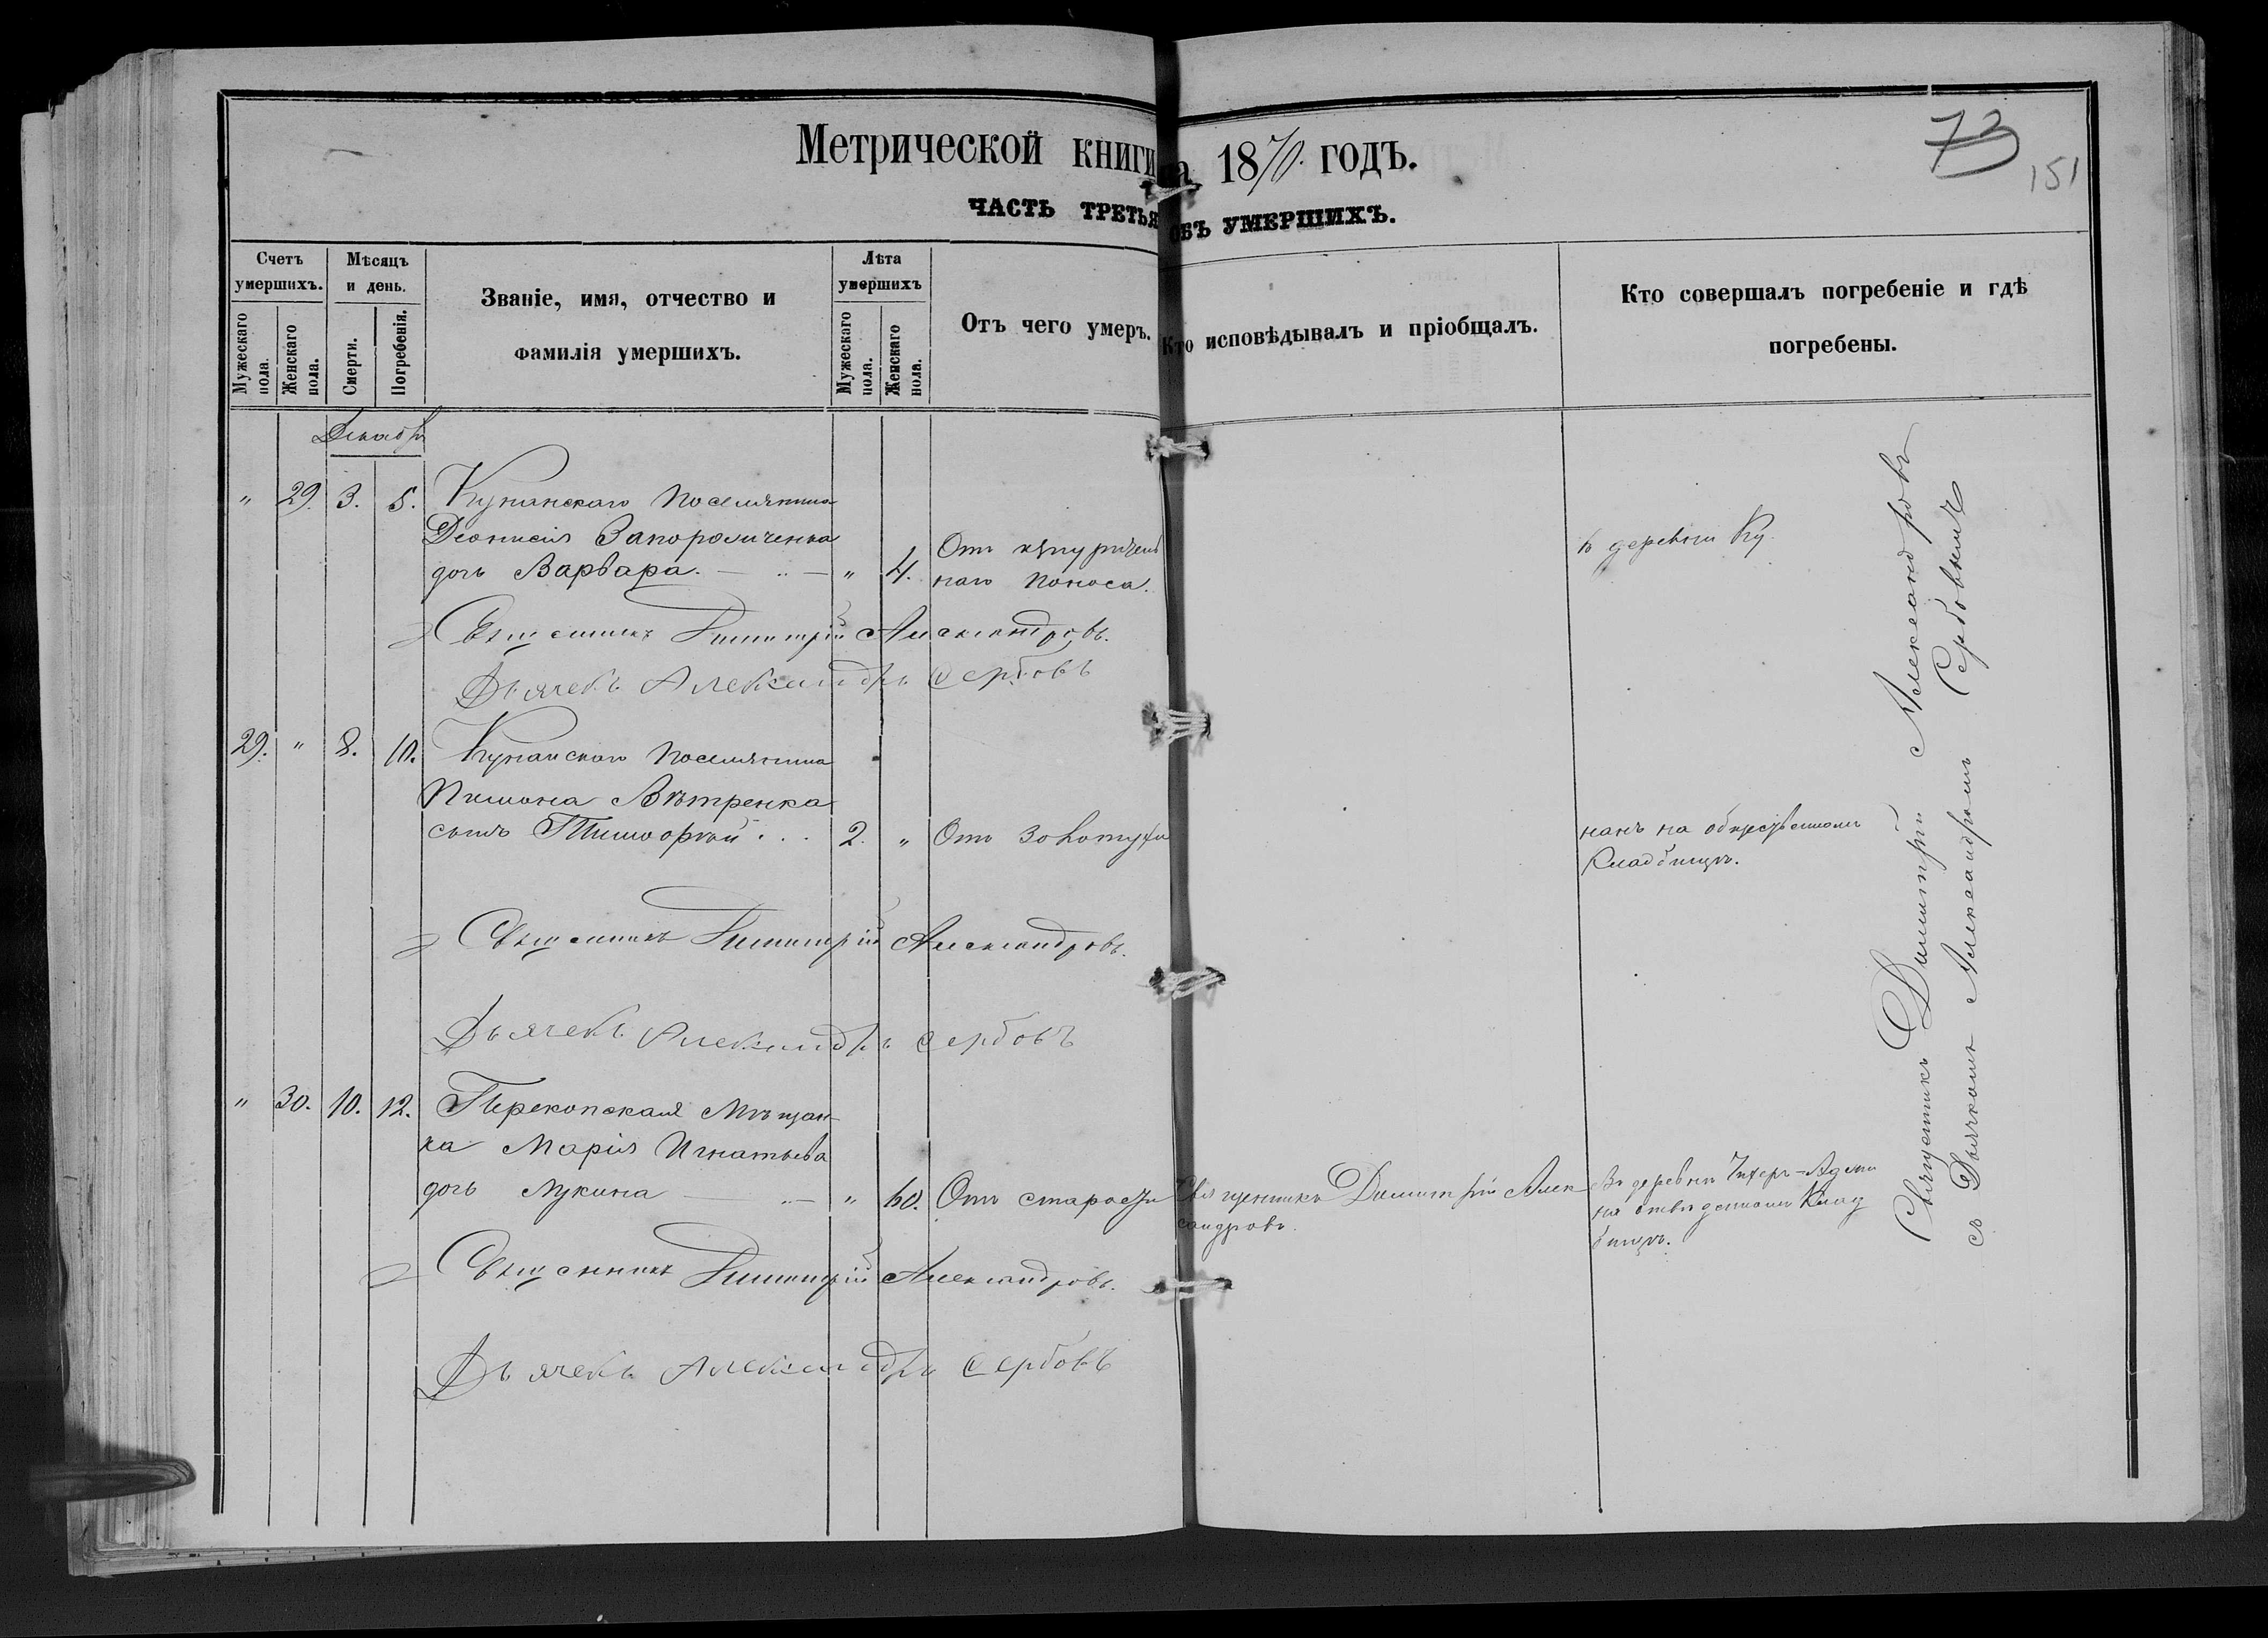 Метрической книги на 1870. годъ.
73
151
ЧАСТЬ ТРЕТЬЯ ОБЪ УМЕРШИХЪ.
Счетъ умершихъ.
Мужескаго пола.
Женскаго пола.
Мѣсяцъ и день.
Смерти.
Погребенія.
Званіе, имя, отчество и
фамилія умершихъ.
Лѣта умершихъ
Мужескаго пола.
Женскаго пола.
Отъ чего умеръ.
Кто исповѣдывалъ и пріобщалъ.
Кто совершалъ погребеніе и гдѣ
погребены.
Декабрь
" 29. 3. 5. Кунанскаго Поселянина
Дионисія Запорожченка
дочь Варвара. " 4. Отъ
наго поноса.
в деревни Ку-
Священникъ Димитрій Александровъ.
Дьячекъ Александръ Сербовъ
29. " 8. 10. Кунанскаго Поселянина
Пимона Вѣтренка
сынъ Тимофей 2. " Отъ Золотухи
нанъ на общественномъ
Кладбищѣ.
Священникъ Димитрій Александровъ.
Дьячекъ Александръ Сербовъ
" 30. 10. 12. Перекопская Мѣщан-
ка Марія Игнатьева
дочь Лукина " 60. Отъ старости
Священникъ Димитрій Алек
сандровъ.
Въ деревнѣ
на отведенномъ Клад
бищѣ.
Священникъ Димитрій Александровъ.
Дьячекъ Александръ Сербовъ
Священникъ Димитрій Александровъ
съ Дьячкомъ Александромъ Сербовымъ